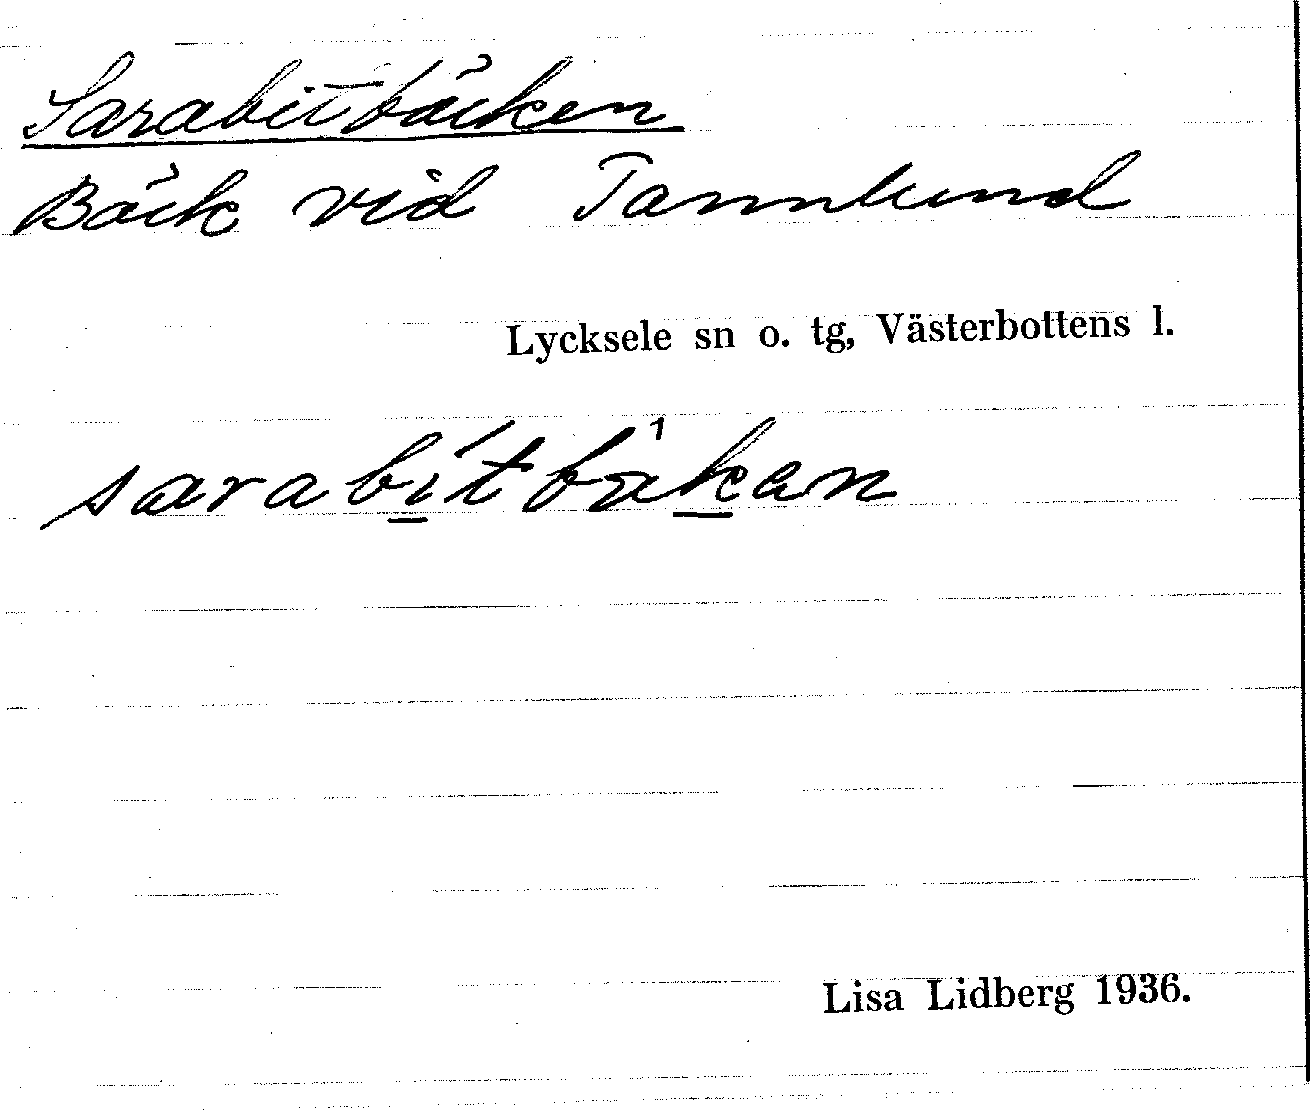 Sarabitbäcken
Bäck vid Tannlund
Lycksele sn o. tg, Västerbottens l.
sarabí̲tbäk̲en
Lisa Lidberg 1936.